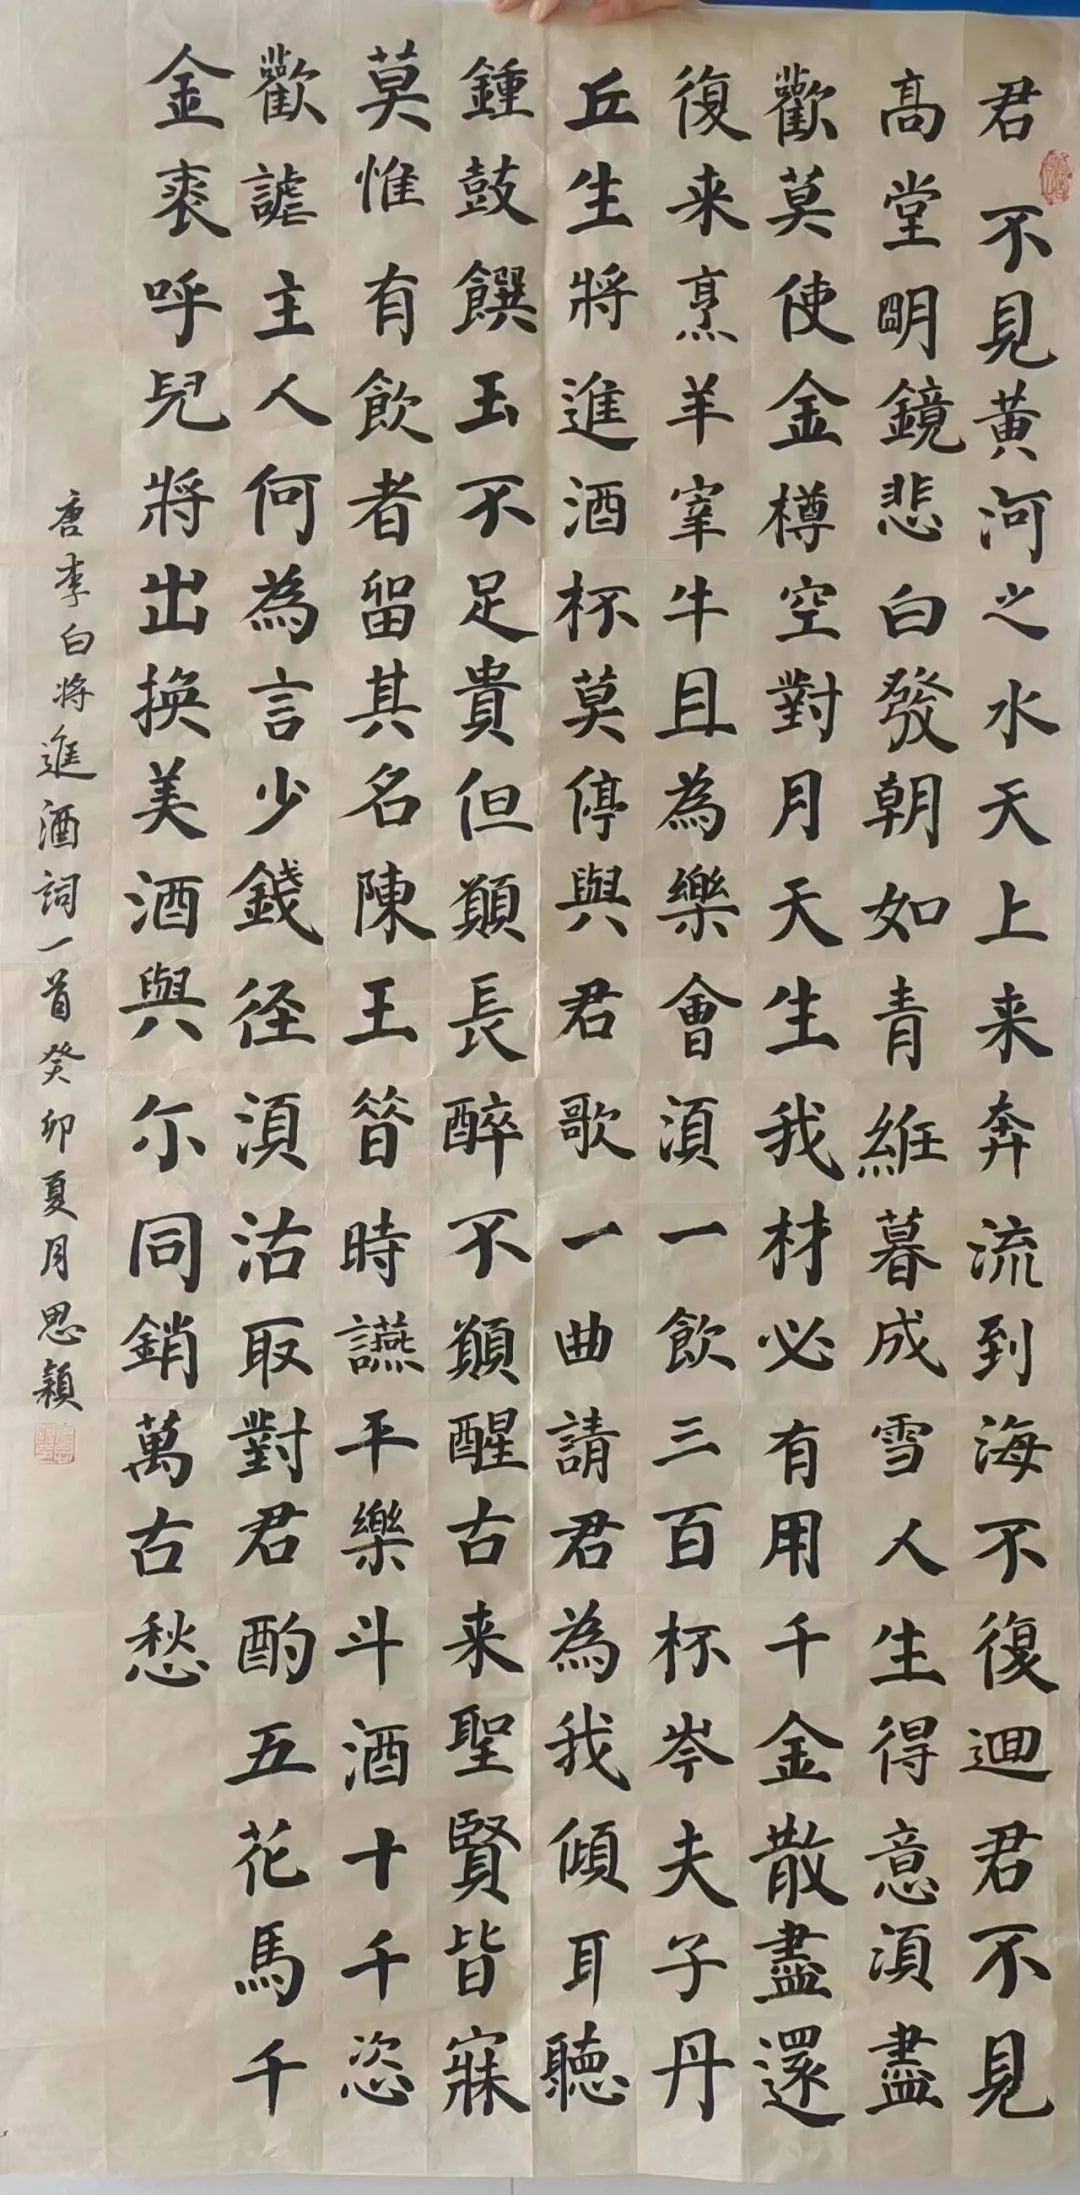 君不見黃河之水天上来奔流到海不復迴君不見
高堂明鏡悲白發朝如青絲暮成雪人生得意須盡
歡莫使金樽空對月天生我材必有用千金散盡還
復来烹羊宰牛且為樂會須一飲三百杯岑夫子丹
丘生將進酒杯莫停與君歌一曲請君為我傾耳聽
鍾鼓饌玉不足貴但願長醉不願醒古来聖賢皆寂
莫惟有飲者留其名陳王昔時讌平樂斗酒十千恣
歡謔主人何為言少錢径須沽取對君酌五花馬千
金裘呼兒將出換美酒與尔同銷萬古愁
唐李白将進酒詞一首癸卯夏月思穎